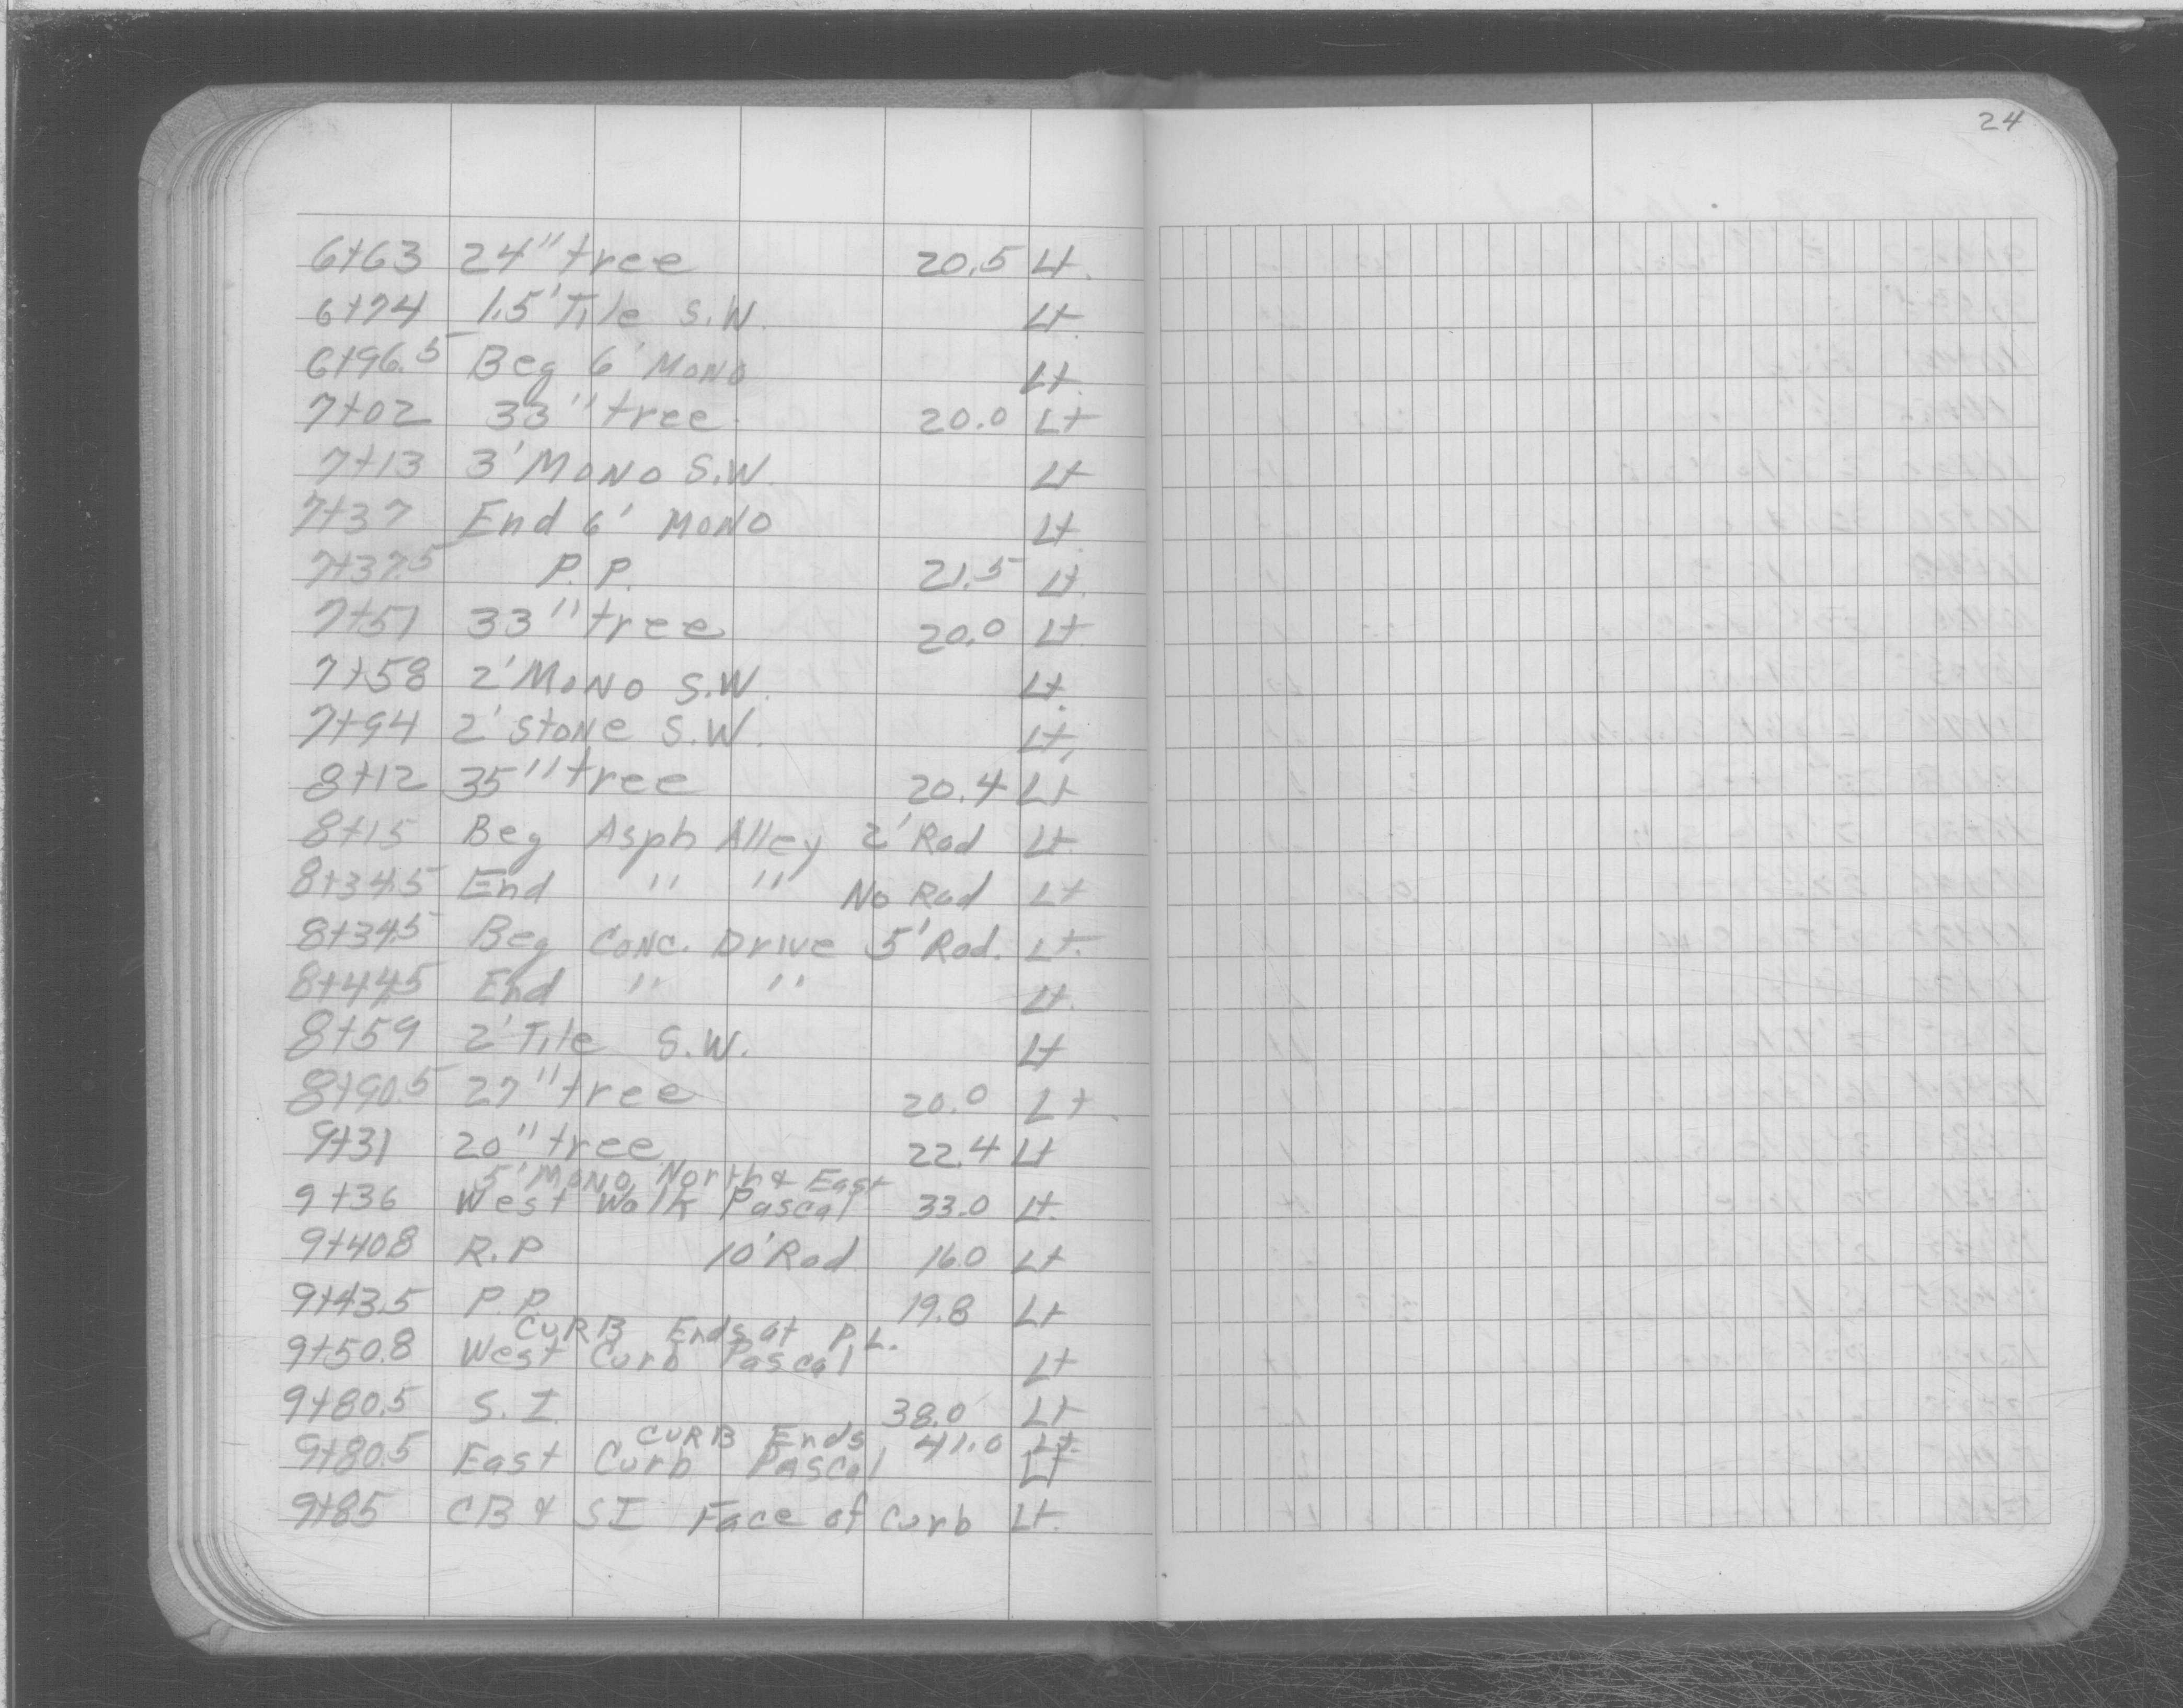 24
6+63 24" tree 20.5 Lt.
6+74 1.5' Tile S.W. Lt.
6+96.5 Beg 6' Mono Lt.
7+02 33" tree 20.0 Lt
7+13 3' Mono S.W. Lt
7+37 End 6' Mono Lt.
7+37.5 P.P. 21.5 Lt.
7+51 33" tree 20.0 Lt
7+58 2' Mono S.W. Lt.
7+94 2' Stone S.W. Lt.
8+12 35" tree 20.4 Lt
8+15 Beg Asph Alley 2' Rad Lt.
8+34.5 End " " No Rad Lt
8+34.5 Beg Conc. Drive 5' Rad. Lt.
8+44.5 End " " Lt.
8+59 2' Tile S.W. Lt
8+90.5 27" tree 20.0 Lt.
9+31 20" tree 22.4 Lt
5' Mono North & East
9+36 West Walk Pascal 33.0 Lt.
9+40.8 R.P 10' Rad 16.0 Lt
9+43.5 P.P. 19.8 Lt
CURB Ends at P.L.
9+50.8 West Curb Pascal Lt
9+80.5 S.I. 38.0 Lt
CURB Ends 41.0 Lt.
9+80.5 East Curb Pascal Lt
9+85 CB & SI Face of Curb Lt.